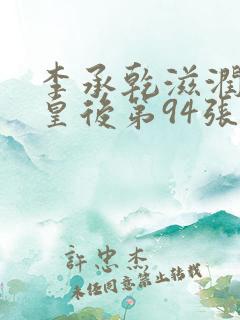 李承乾滋潤
皇後第94張
許忠杰
未經同意禁止轉載